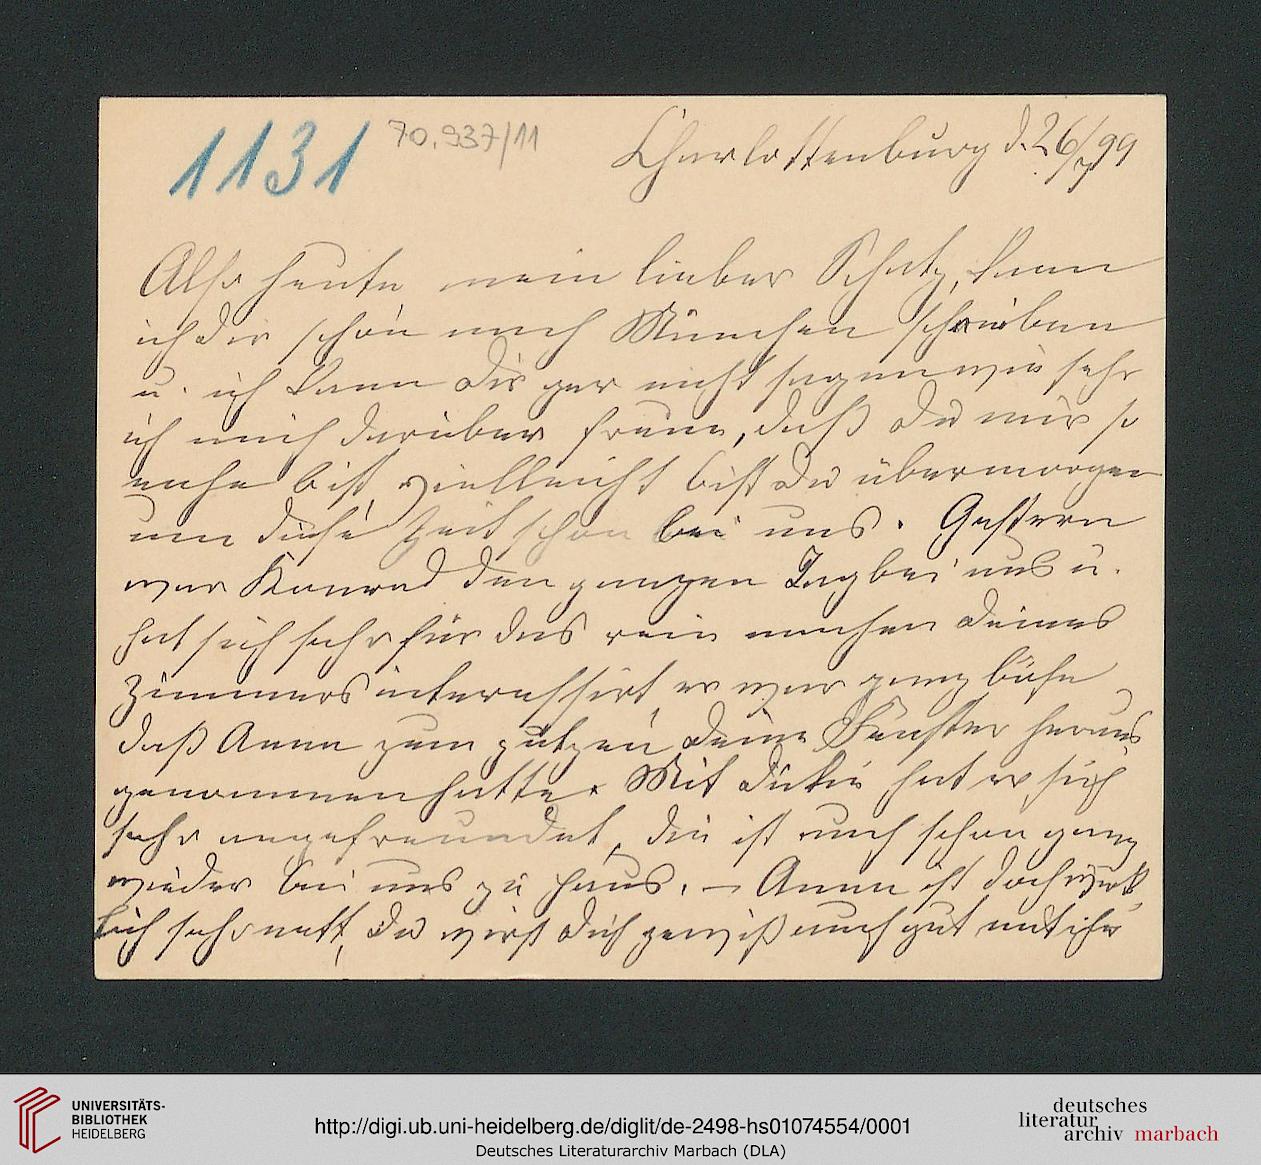 1131
70.937/11
Charlottenburg d. 26/7 99
Also heute, mein lieber Schatz, kann
ich dir schon nach München schreiben
u. ich kann Dir gar nicht sagen wie sehr
ich mich darüber freue, daß Du mir so
nahe bist, vielleicht bist Du übermorgen
um diese Zeit schon bei uns. Gestern
war Konrad den ganzen Tag bei uns u.
hat sich sehr für das rein machen Deines
Zimmers interessirt, er war ganz böse
daß Anna zum putzen Deine Fenster heraus
genommen hatte. Mit hat er sich
sehr angefreundet, die ist auch schon ganz
wieder bei uns zu Haus. – Anna ist doch wirk
lich sehr nett, Du wirst Dich gewiß auch gut mit ihr
UNIVERSITÄTS-
BIBLIOTHEK
HEIDELBERG
http://digi.ub.uni-heidelberg.de/diglit/de-2498-hs01074554/0001
Deutsches Literaturarchiv Marbach (DLA)
deutsches
literatur
archiv marbach